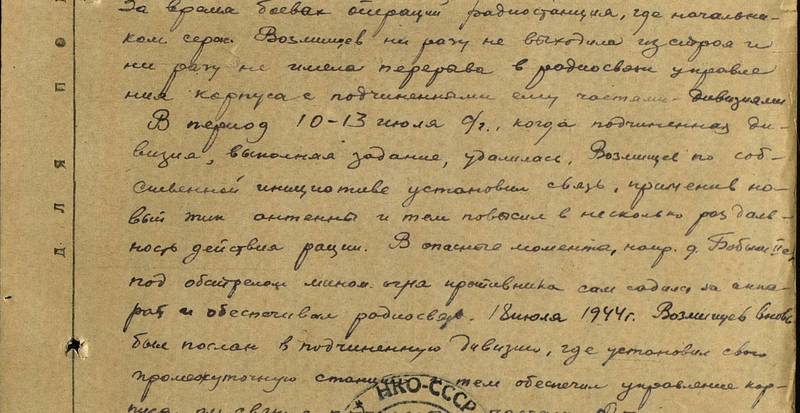 За время боевых операций радиостанция, где начальни-
ком серж. Возмищев ни разу не выходила из строя и
ни разу не имела перерыва в радиосвязи управле
ния корпуса с подчиненными ему частями-дивизиями
В период 10-13 июля с/г., когда подчиненная ди-
визия, выполняя задание, удалилась, Возмищев по соб-
ственной инициативе установил связь, применив но-
вый тип антенны и тем повысил в несколько раз даль-
ность действия рации. В опасные моменты, напр. д.
под обстрелом мином. огня противника сам садился за аппа-
рат и обеспечивал радиосвязь. 18 июля 1944г. Возмищев вновь
был послан в подчиненную дивизию, где установил свою
промежуточную станцию тем обеспечил управление кор-
пуса
ДЛЯ ПО
НКО-СССР